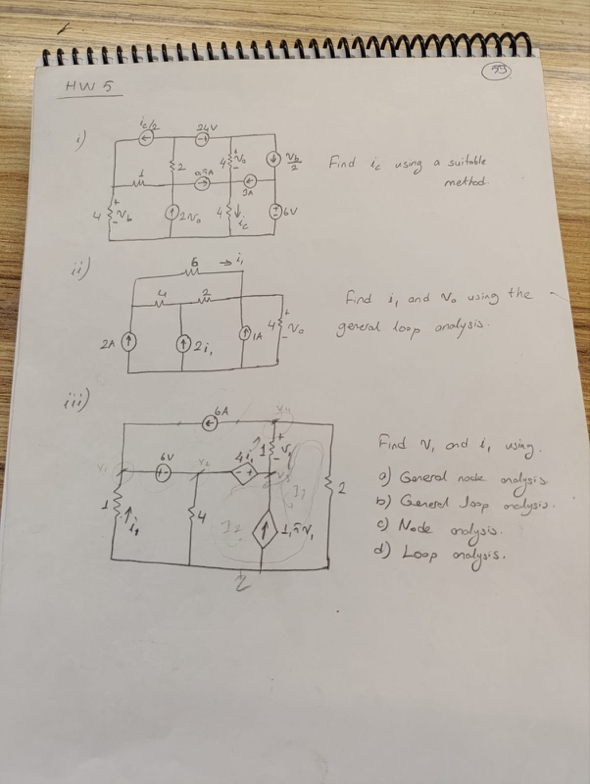 59
HW 5
i)
ic/2
24V
2
4
Va
Vb/2
1
3A
4
Vb
2Va
4
ic
6V
Find ic using a suitable
method.
ii)
6
i1
4
2
2A
2i1
1A
4
Vo
Find i1 and Vo using the
general loop analysis.
iii)
6A
V4
1
V1
6V
V2
4i1
V3
2
1
i1
4
I2
1,5V1
I3
2
Find V1 and i1 using.
a) General node analysis
b) General loop analysis.
c) Node analysis.
d) Loop analysis.